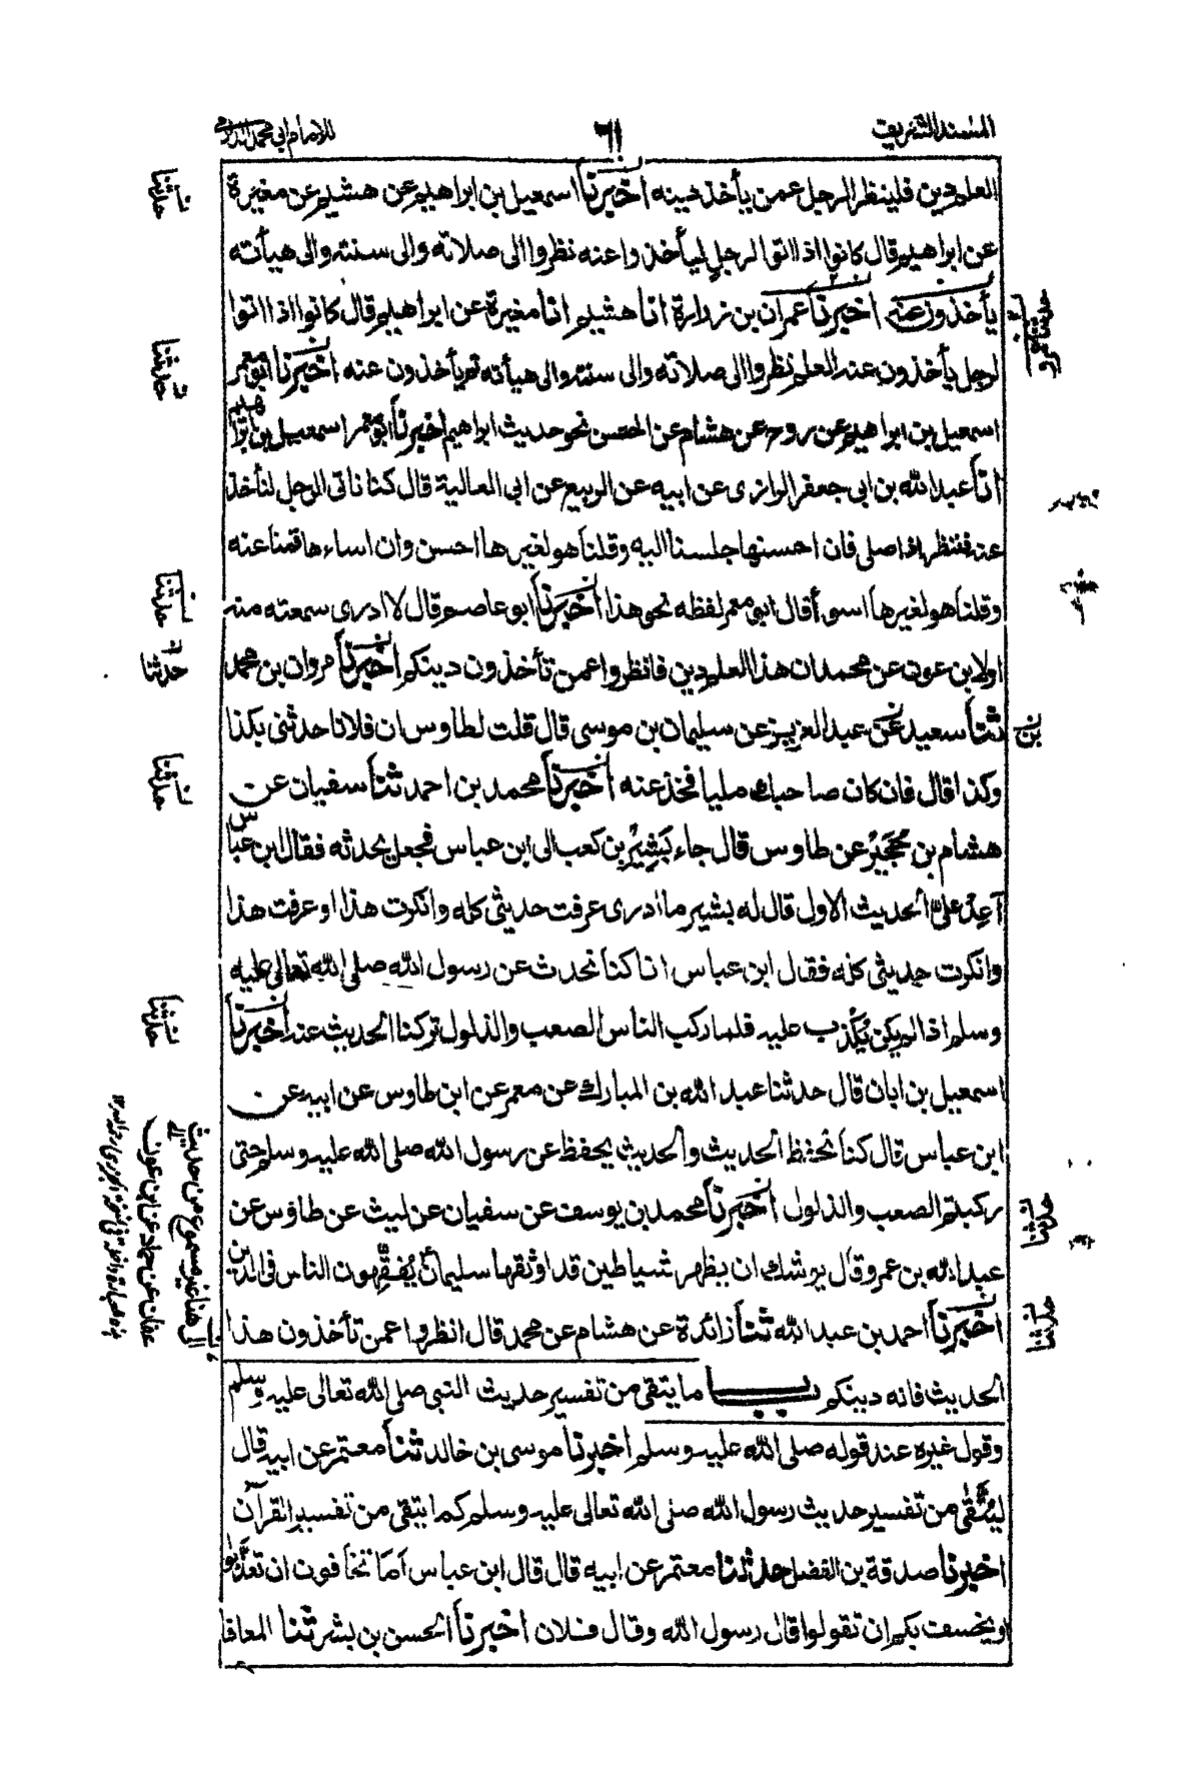 المسند الشريف
٦١
للامام ابي محمد الدارمي
العلم دين فلينظر الرجل عمن يأخذ دينه اخبرنا اسمعيل بن ابراهيم عن هشيم عن مغيرة
عن ابراهيم قال كانوا اذا اتوا الرجل ليأخذوا عنه نظروا الى صلاته والى سنته والى هيأته
يأخذون عنه اخبرنا عمران بن زرارة انا هشيم انا مغيرة عن ابراهيم قال كانوا اذا اتوا
الرجل يأخذون عنه العلم نظروا الى صلاته والى سنته والى هيأته ثم يأخذون عنه اخبرنا ابو معمر
اسمعيل بن ابراهيم عن روح عن هشام عن الحسن نحو حديث ابراهيم اخبرنا ابو معمر اسمعيل بن ابراهيم
انا عبد الله بن ابى جعفر الرازى عن ابيه عن الربيع عن ابى العالية قال كنا ناتى الرجل لنأخذ
عنه فننظر اذا صلى فان احسنها جلسنا اليه وقلنا هو لغيرها احسن وان اساءها قمنا عنه
وقلنا هو لغيرها اسوأ قال ابو معمر لفظه نحو هذا اخبرنا ابو عاصم قال لا ادرى سمعته منه
اولا بن عون عن محمد ان هذا العلم دين فانظروا عمن تأخذون دينكم اخبرنا مروان بن محمد
ثنا سعيد عن عبد العزيز عن سليمان بن موسى قال قلت لطاوس ان فلانا حدثنى بكذا
وكذا قال فان كان صاحبك مليا فخذ عنه اخبرنا محمد بن احمد ثنا سفيان عن
هشام بن حجير عن طاوس قال جاء بشير بن كعب الى ابن عباس فجعل يحدثه فقال ابن عباس
أعد على الحديث الاول قال له بشير ما ادرى عرفت حديثى كله وانكرت هذا او عرفت هذا
وانكرت حديثى كله فقال ابن عباس انا كنا نحدث عن رسول الله صلى الله تعالى عليه
وسلم اذ لم يكن يكذب عليه فلما ركب الناس الصعب والذلول تركنا الحديث عنه اخبرنا
اسمعيل بن ابان قال حدثنا عبد الله بن المبارك عن معمر عن ابن طاوس عن ابيه عن
ابن عباس قال كنا نحفظ الحديث والحديث يحفظ عن رسول الله صلى الله عليه وسلم حتى
ركبتم الصعب والذلول اخبرنا محمد بن يوسف عن سفيان عن ليث عن طاوس عن
عبد الله بن عمرو قال يوشك ان يظهر شياطين قد اوثقها سليمان يفقهون الناس فى الدين
اخبرنا احمد بن عبد الله ثنا زائدة عن هشام عن محمد قال انظروا عمن تأخذون هذا
الحديث فانه دينكم باب ما يتقى من تفسير حديث النبى صلى الله تعالى عليه وسلم
وقول غيره عند قوله صلى الله عليه وسلم اخبرنا موسى بن خالد ثنا معتمر عن ابيه قال
ليتقى من تفسير حديث رسول الله صلى الله تعالى عليه وسلم كما يتقى من تفسير القرآن
اخبرنا صدقة بن الفضل حدثنا معتمر عن ابيه قال قال ابن عباس أما تخافون ان تعذبوا
او يخسف بكم ان تقولوا قال رسول الله وقال فلان اخبرنا الحسن بن بشر ثنا المعافا
حدثنا
حدثنا
حدثنا
حدثنا
حدثنا
حدثنا
حدثنا
حدثنا
الى هنا غير مسموع من حديث
عفان عن حماد عن ابن عون